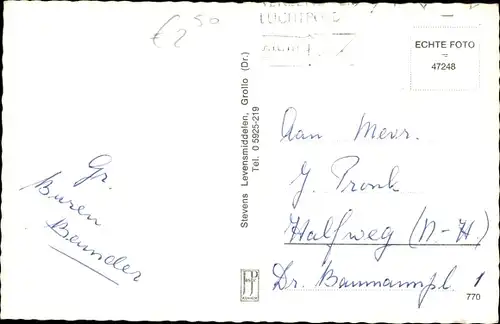 €2,50
LUCHTPOST
ECHTE FOTO
47248
Stevens Levensmiddelen, Grollo (Dr.)
Tel. 0 5925-219
Aan Mevr.
J. Pronk
Halfweg (N-H)
Dr. Baumannpl. 1
770
Gr.
Buren